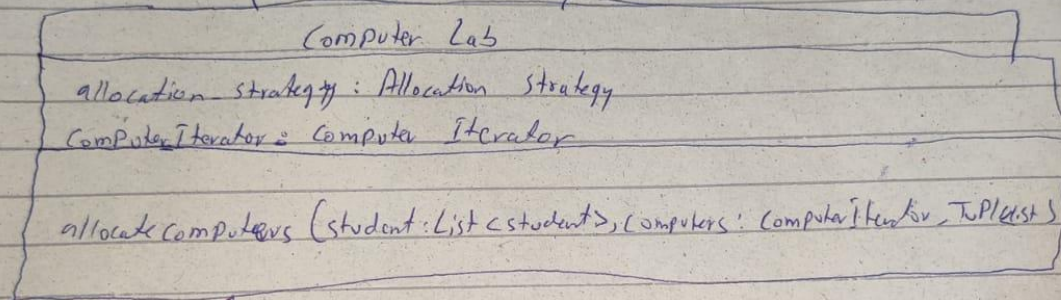 Computer Lab
allocation_strategy : Allocation Strategy
ComputerIterator : Computer Iterator
allocateComputers (student : List <student>, Computers : ComputerIterator,